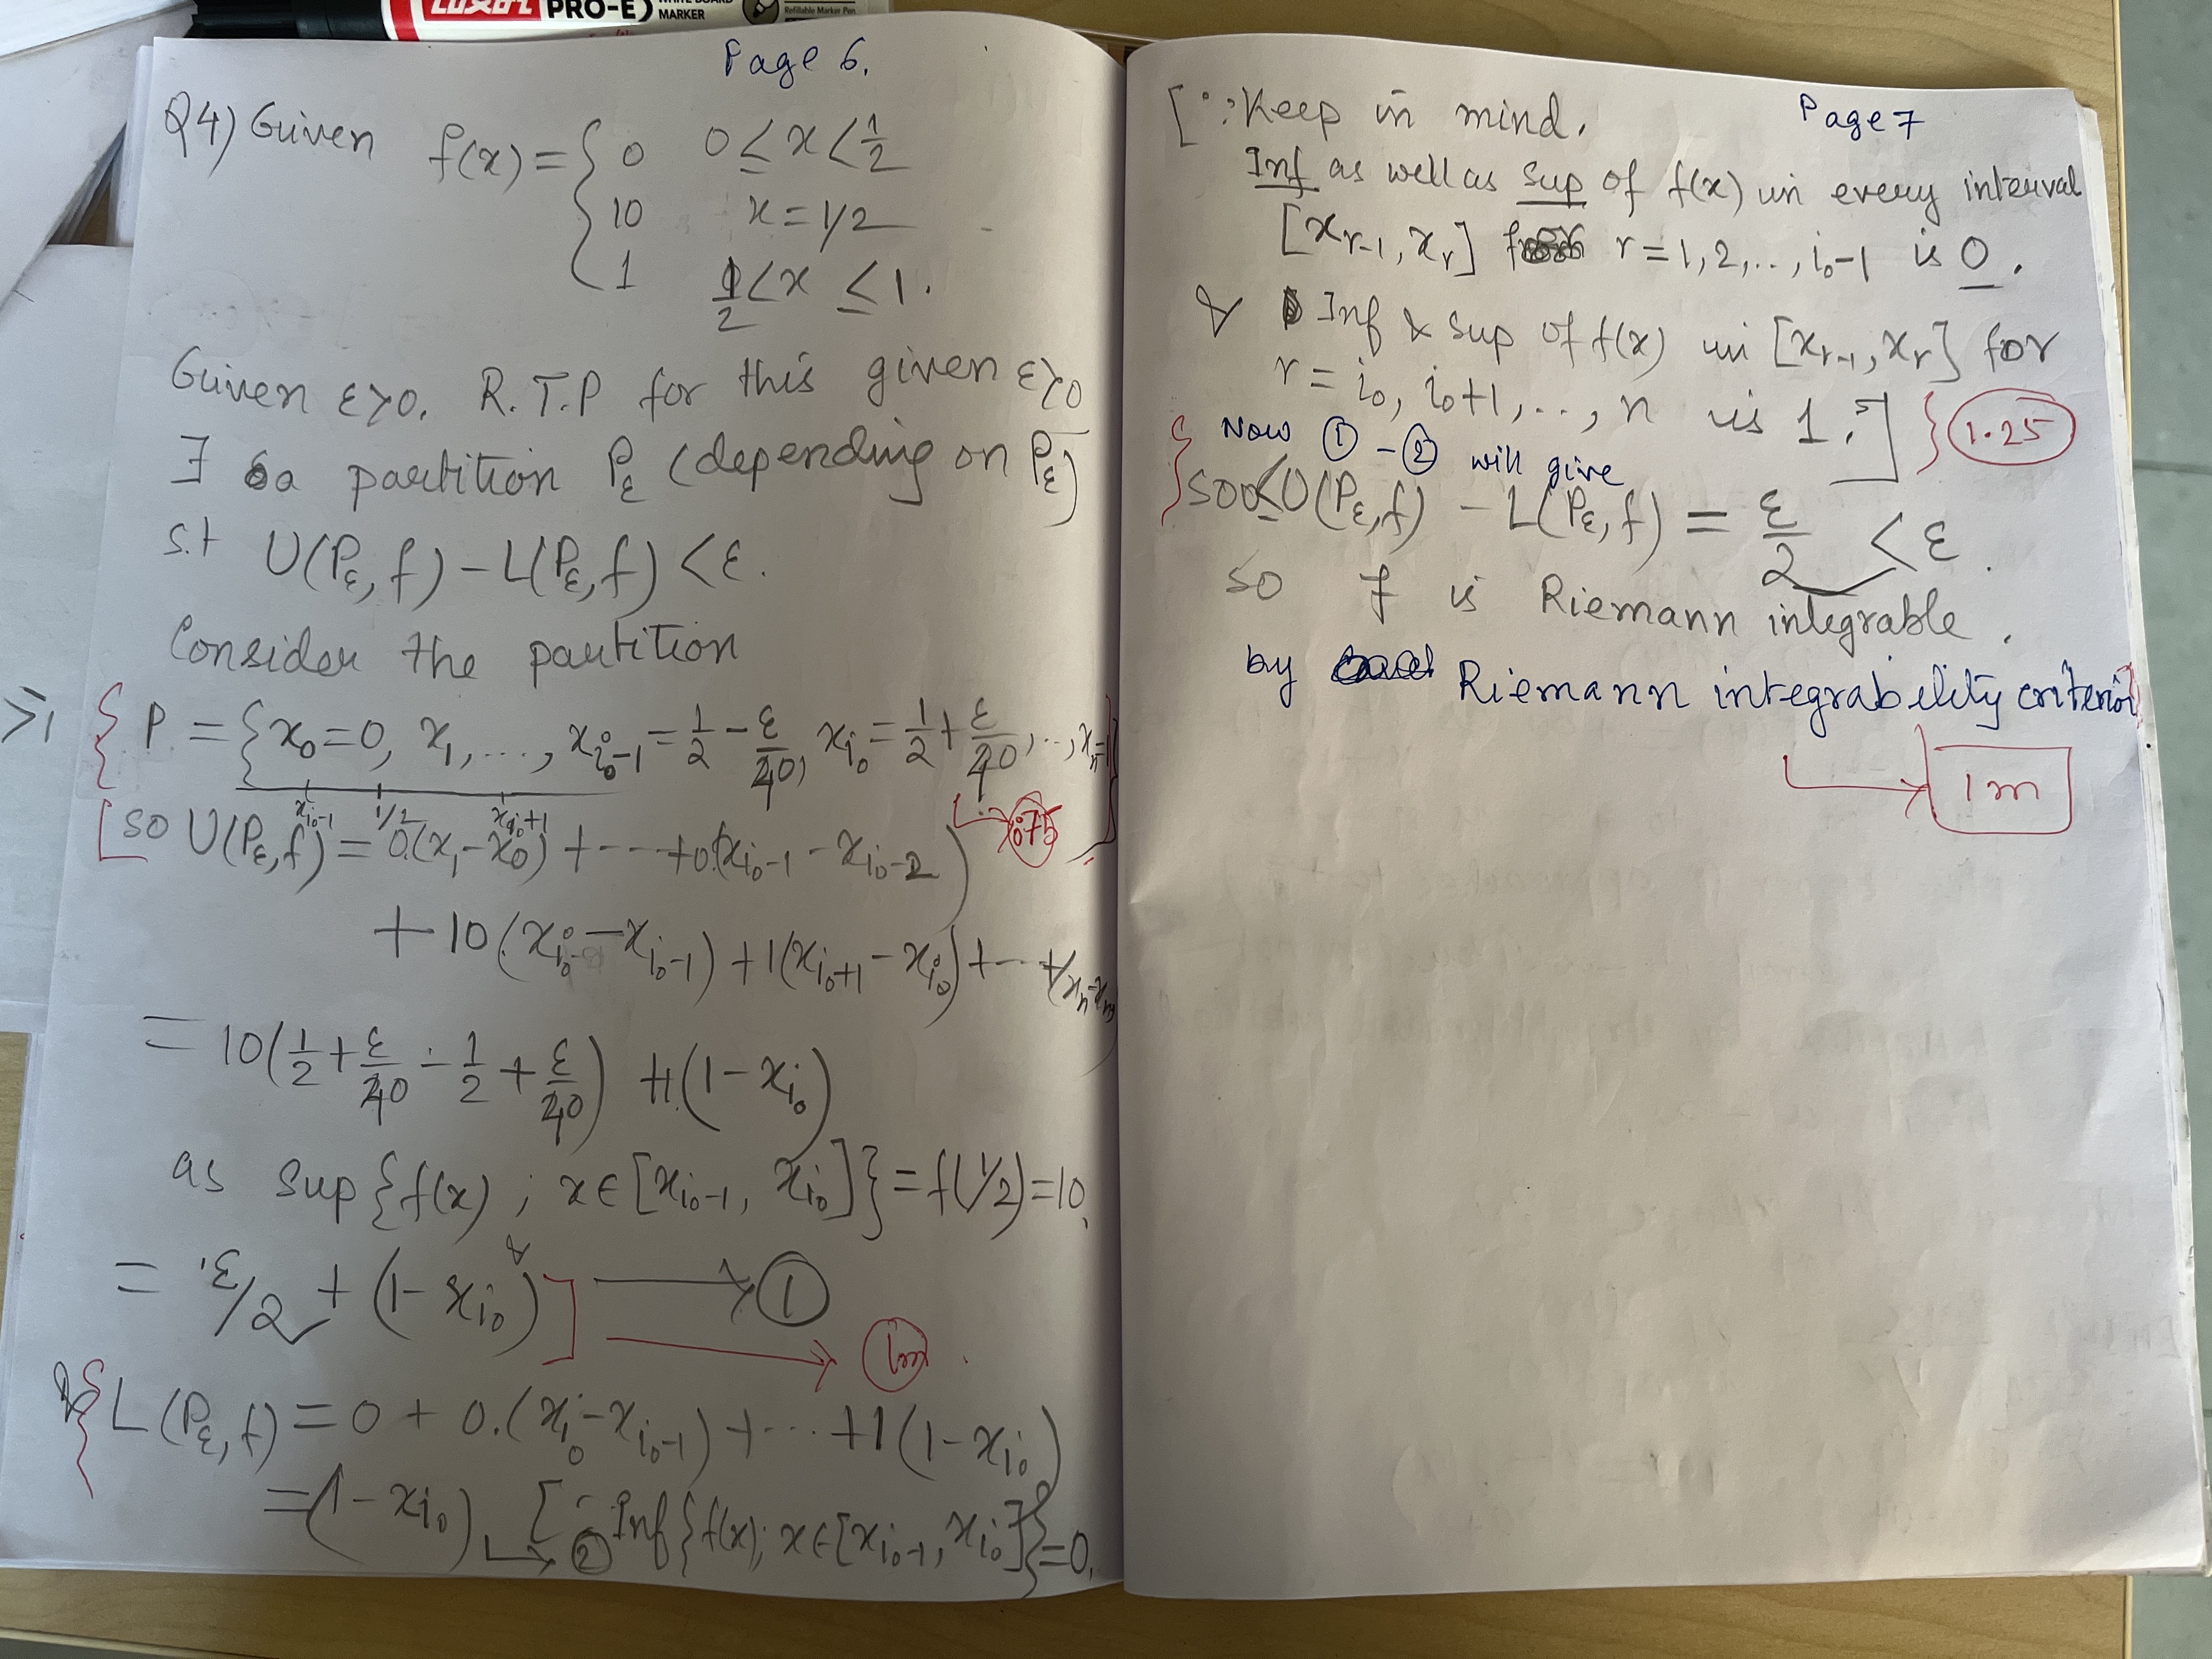 Page 6.
Q4) Given f(x) = { 0 0 ≤ x < 1/2
10 x = 1/2
1 1/2 < x ≤ 1.
Given ε>0. R.T.P for this given ε>0
∃ a partition Pε (depending on Pε)
s.t U(Pε, f) - L(Pε, f) < ε.
Consider the partition
P = { x0 = 0, x1, ..., x_{i0-1} = 1/2 - ε/40, x_{i0} = 1/2 + ε/40, ..., xn = 1}
x_{i0-1} 1/2 x_{i0+1}
so U(Pε, f) = 0(x1 - x0) + --- + 0.(x_{i0-1} - x_{i0-2})
+ 10(x_{i0} - x_{i0-1}) + 1(x_{i0+1} - x_{i0}) + ---
= 10(1/2 + ε/40 - 1/2 + ε/40) + 1.(1 - x_{i0})
as sup {f(x) ; x ∈ [x_{i0-1}, x_{i0}]} = f(1/2) = 10.
= ε/2 + (1 - x_{i0}) ] → ①
& L(Pε, f) = 0 + 0.(x_{i0} - x_{i0-1}) + ... + 1(1 - x_{i0})
= (1 - x_{i0}) ② [∵ Inf {f(x); x ∈ [x_{i0-1}, x_{i0}]} = 0,
Page 7
[∵ Keep in mind,
Inf as well as sup of f(x) in every interval
[x_{r-1}, x_r] r = 1, 2, ..., i0-1 is 0.
& Inf & sup of f(x) in [x_{r-1}, x_r] for
r = i0, i0+1, ..., n is 1.]
1.25
Now ① - ② will give
U(Pε, f) - L(Pε, f) = ε/2 < ε.
so f is Riemann integrable.
by Riemann integrability criterion
1 m
≥1
LUXOR PRO-E
MARKER
Refillable Marker Pen